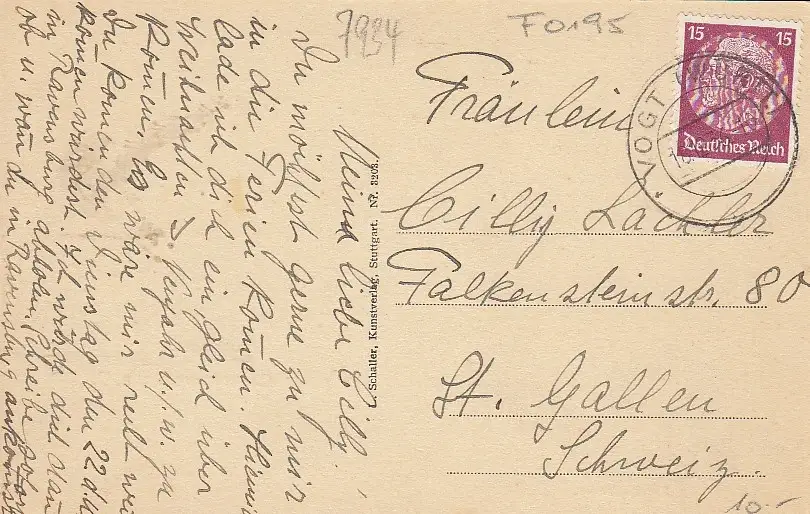 7934
F0195
15 15
Deutsches Reich
VOGT
Fräulein
Cilly Lackler
Falkensteinstr. 80
St. Gallen
Schweiz.
10.-
Schaller, Kunstverlag, Stuttgart. Nr. 3203.
Meine liebe Cilly!
Du möchtest gerne zu mir
in die Ferien komen.
lade ich dich ein gleich über
Weihnachten u. Neujahr u.s.w. zu
komen. Es wär mir recht wen
Du komen den Dienstag den 22.d.M.
komen würdest. Ich würde dich dan
in Ravensburg abholen. Schreibe sofort
ob u. wan du in Ravensburg ankomst